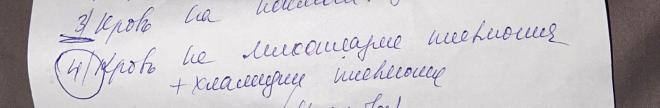 3) Кровь на
4) Кровь на микоплазма пневмония
+ хламидии пневмония